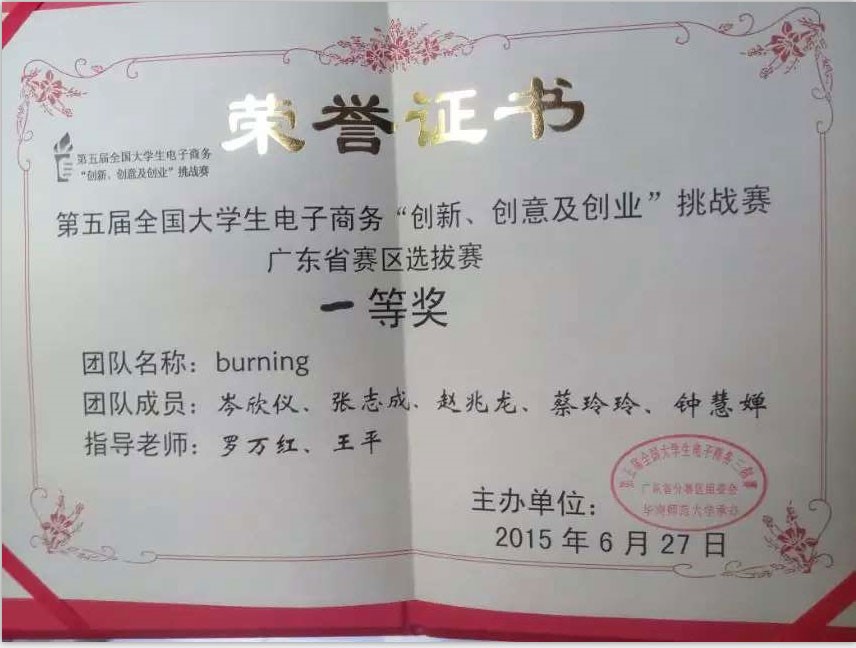 荣誉证书
第五届全国大学生电子商务
“创新、创意及创业”挑战赛
第五届全国大学生电子商务“创新、创意及创业”挑战赛
广东省赛区选拔赛
一等奖
团队名称：burning
团队成员：岑欣仪、张志成、赵兆龙、蔡玲玲、钟慧婵
指导老师：罗万红、王平
第五届全国大学生电子商务三创赛
广东省分赛区组委会
华南师范大学承办
主办单位：
2015年6月27日